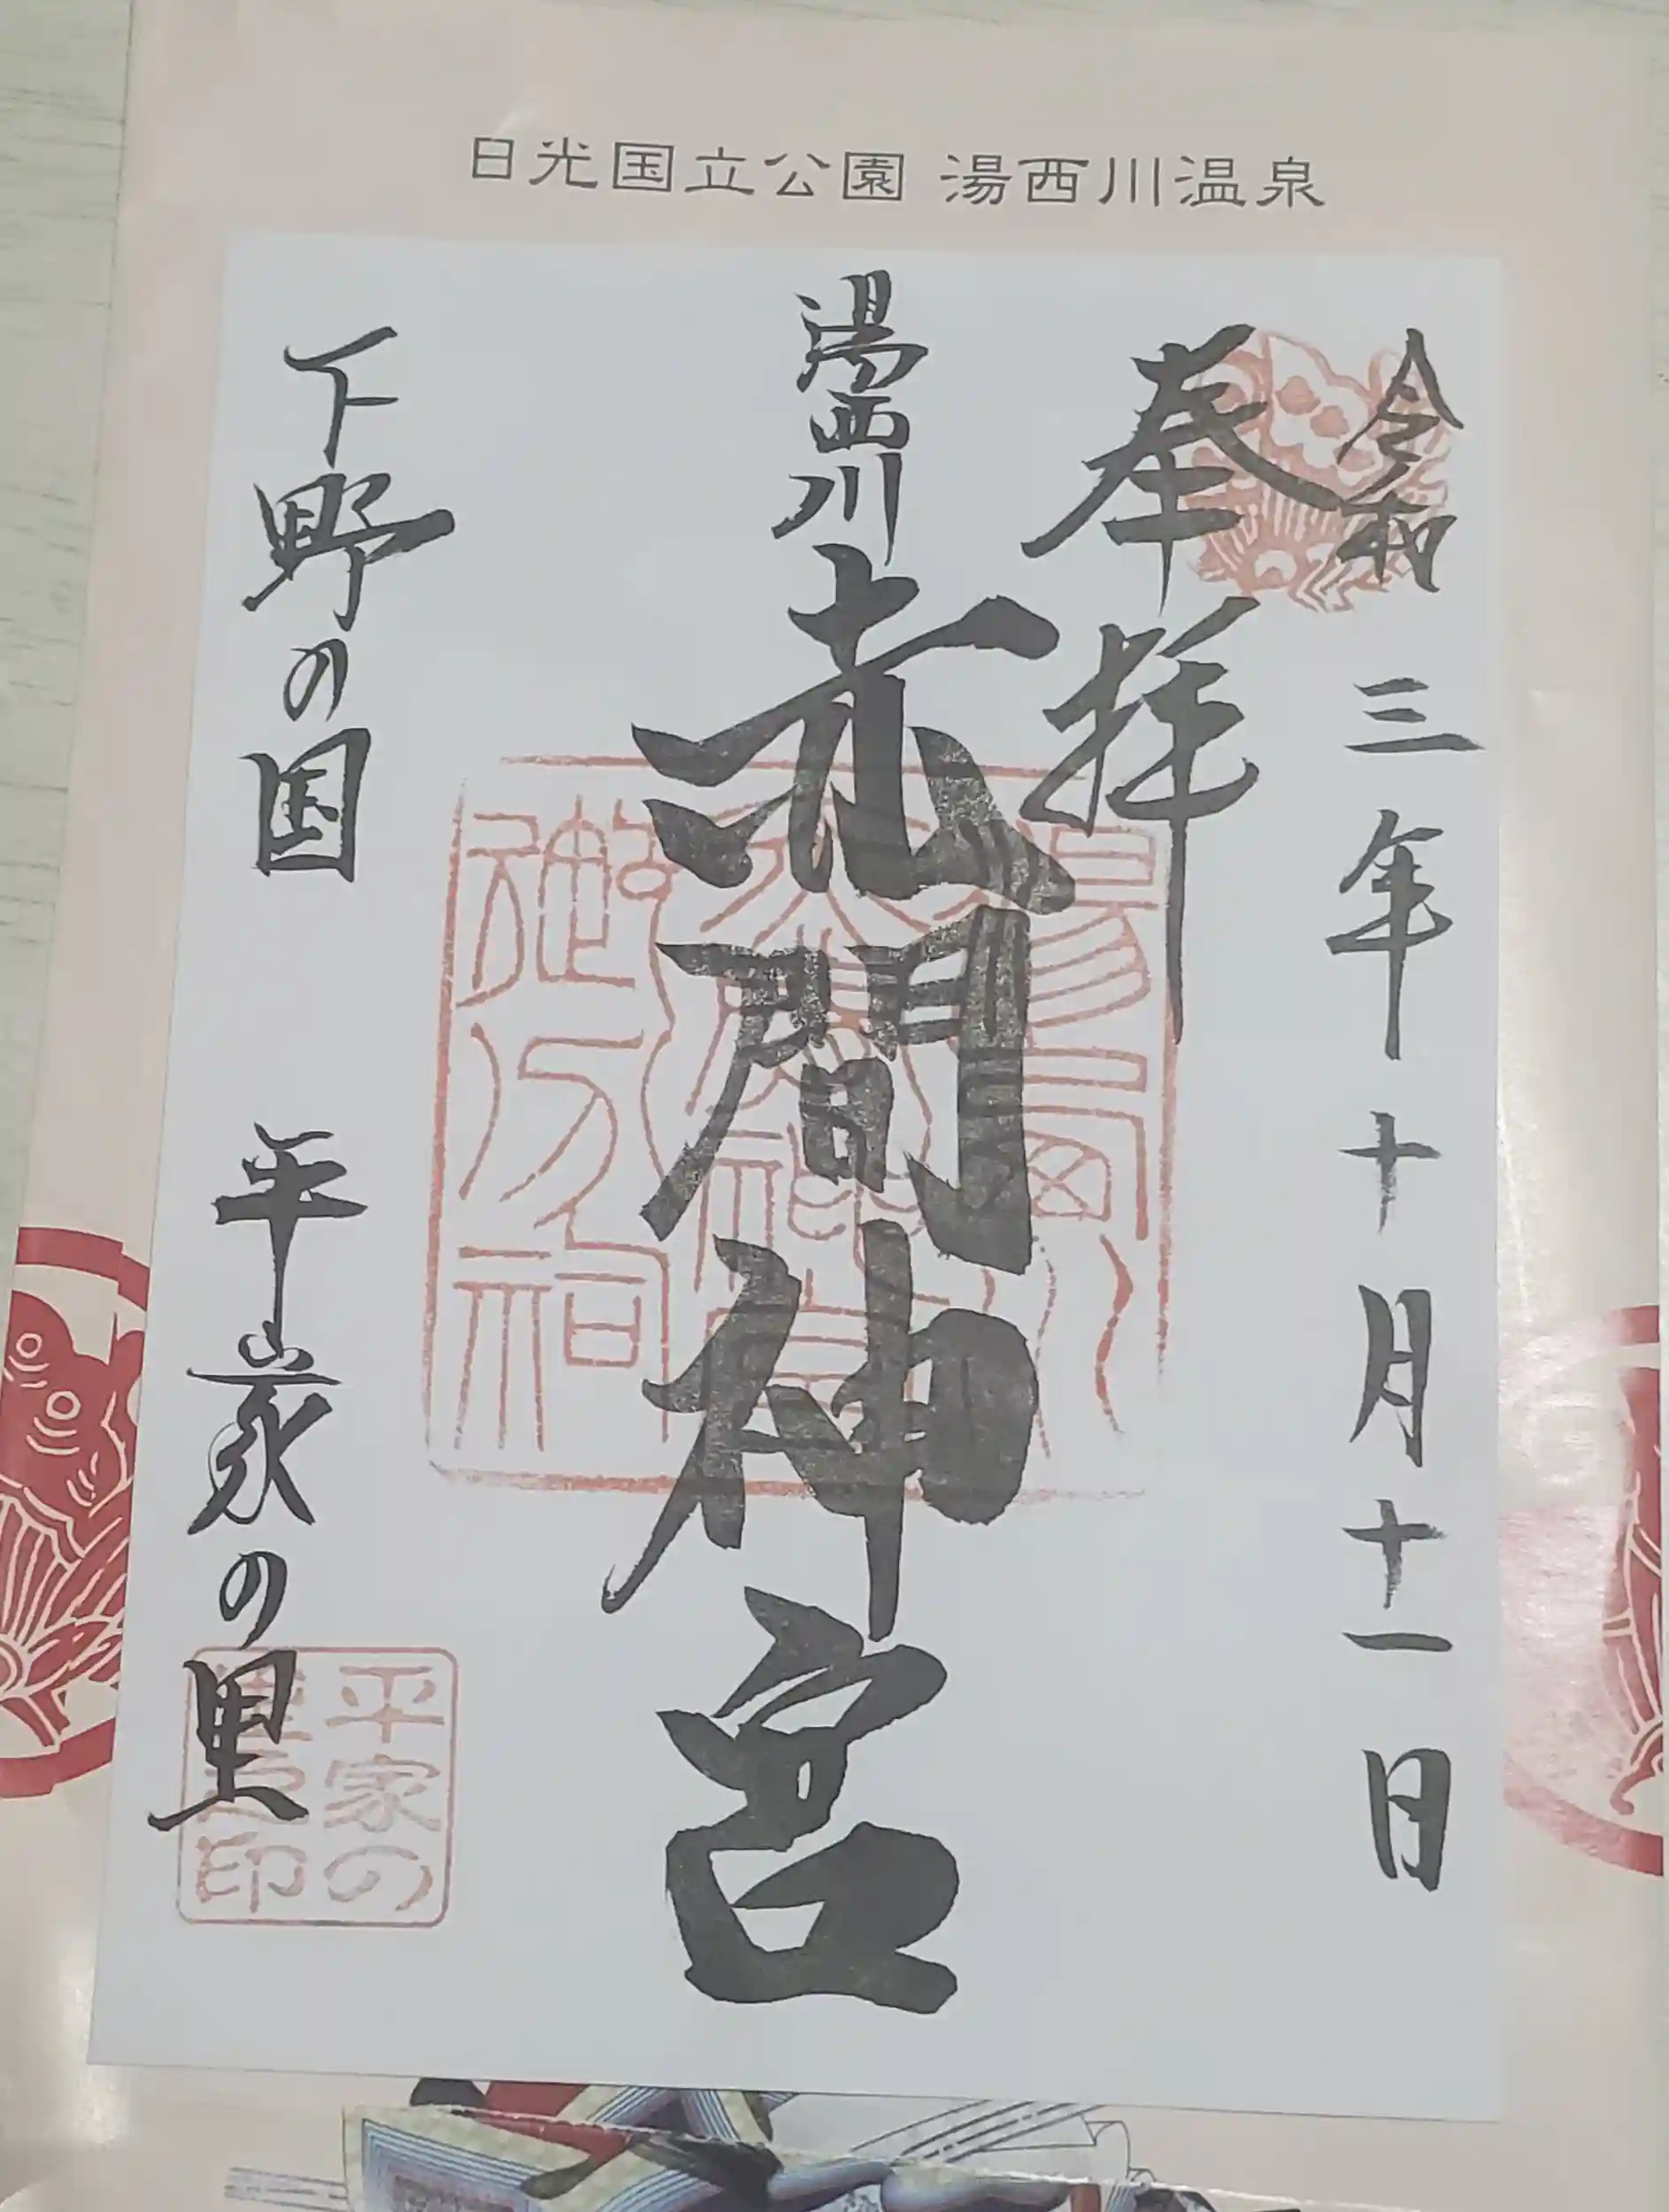 日光国立公園 湯西川温泉
令和三年十月十一日
奉拝
湯西川 赤間神宮
下野の国 平家の里
湯西川
赤間神宮
御分祠
平家の
里之印